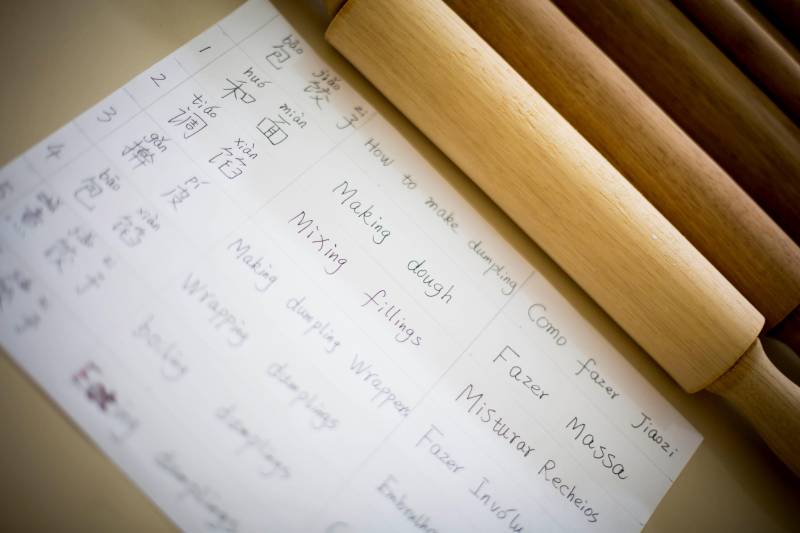 bāo jiǎo zi
包饺子 How to make dumpling Como fazer Jiaozi
huó miàn
1 和面 Making dough Fazer Massa
tiáo xiàn
2 调馅 Mixing fillings Misturar Recheios
gǎn pí
3 擀皮 Making dumpling Wrappers Fazer
bāo xiàn
4 包馅 Wrapping dumplings
jiǎo zi
5 饺子 boiling dumplings
Eating dumplings